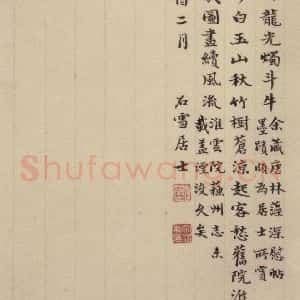 龍光燭斗牛
余藏唐林藻深慰帖
墨蹟頗為居士所賞
白玉山秋竹樹蒼涼起客愁舊院淮
圖畫續風流
淮雲院蘇州志未
載蓋湮没久矣
二月 石雪居士
Shufawang